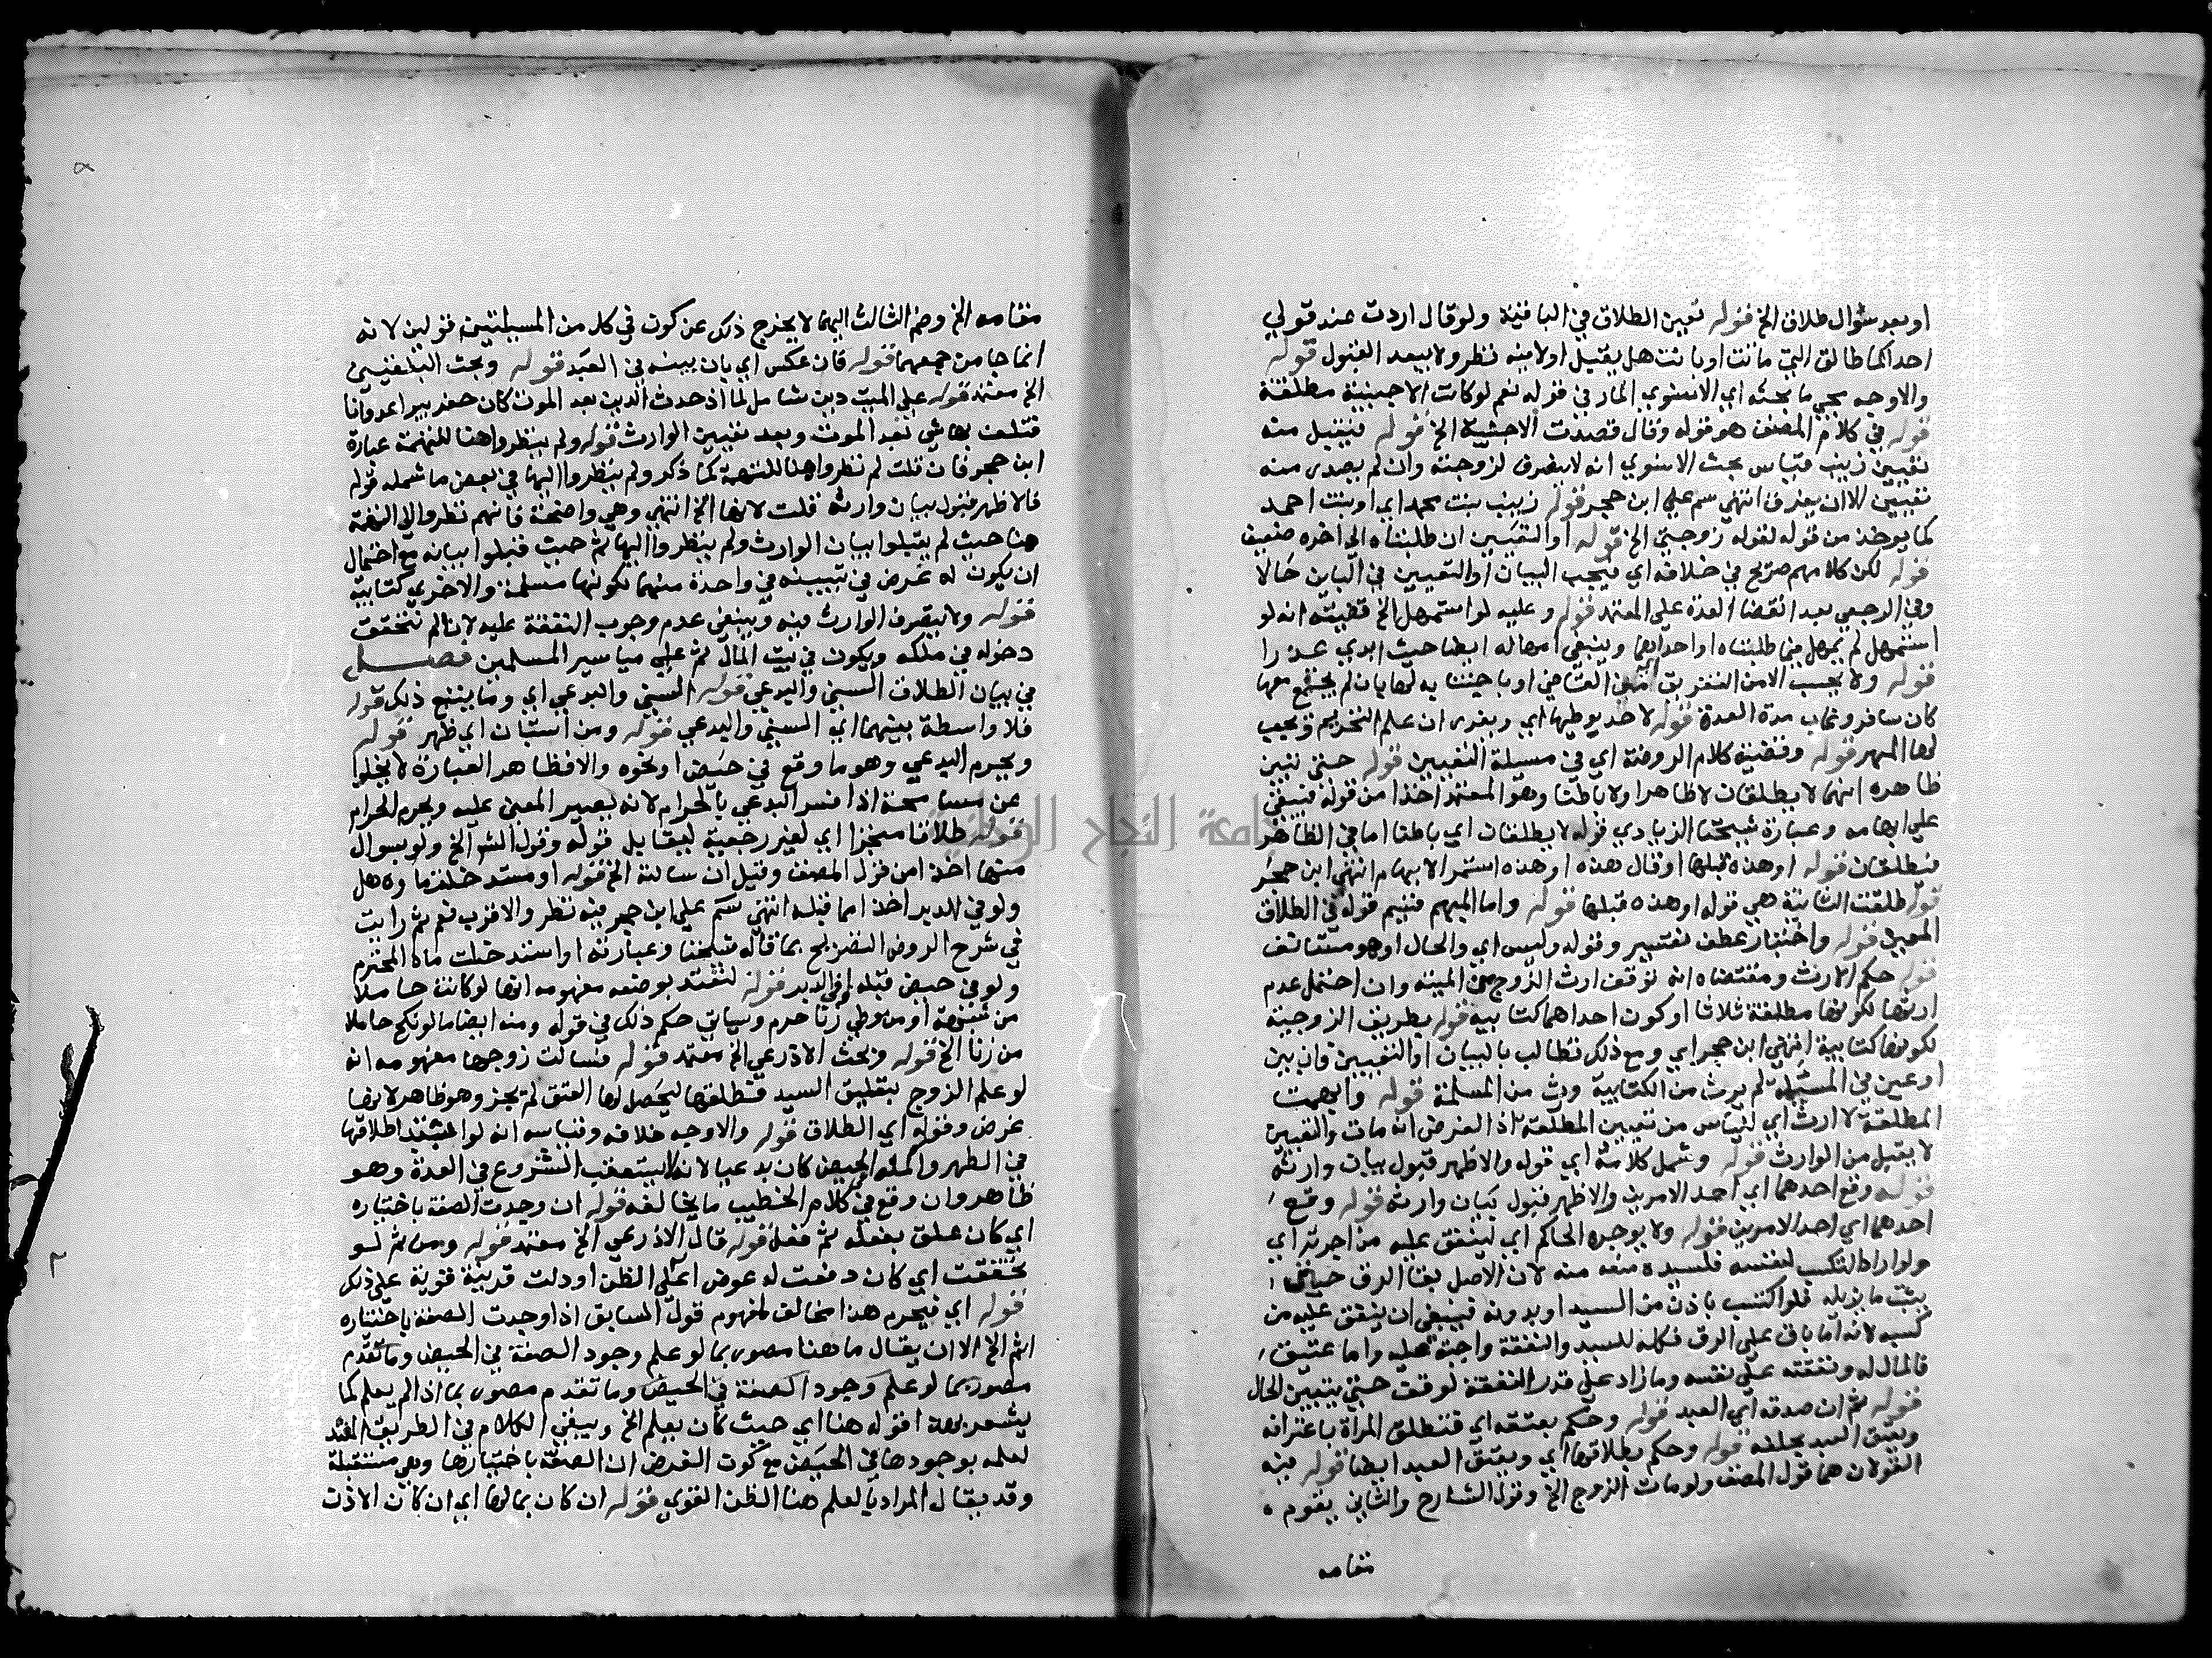 او بعد سؤال طلاق الخ قوله تعين الطلاق في الباقية ولو قال اردت عند قولي
احداكما طالق التي ماتت او بانت هل يقبل اولا فيه نظر ولا يبعد القبول قوله
والاوجه مجي ما بحثه اي الاسنوي المار في قوله نعم لو كانت الاجنبية مطلقة
قوله في كلام المصنف هو قوله وقال قصدت الاجنبية الخ قوله فيقبل منه
تعيين زينب قياس بحث الاسنوي انه لا يصرف لزوجته وان لم يصدر منه
تعيين الا ان يفرق انتهى سم علي ابن حجر قوله زينب بنت محمد اي او بنت احمد
كما يوخذ من قوله لقوله زوجتي الخ قوله او التعيين ان طلبتاه الى اخره ضعيف
قوله لكن كلامهم صريح في خلافه اي فيجب البيان او التعيين في الباين حالا
وفي الرجعي بعد انقضا العدة على المعتمد قوله وعليه لو استمهل الخ قضيته انه لو
استمهل لم يمهل فيما طلبتاه او احداهما وينبغي امهاله ايضا حيث ابدي عذرا
قوله ولا يحسب الامن التفريق القاضي او باحتنابه لها بان لم يجتمع معها
كان سافر وغاب مدة العدة قوله لا حد بوطيها اي ويعزر ان علم التحريم ويجب
لها المهر قوله وقضية كلام الروضة اي في مسيلة التعيين قوله حتي تبين
ظاهره انهما لا يطلقان لا ظاهرا ولا باطنا وهو المعتمد اخذا من قوله فيبقي
علي ابهامه وعبارة شيخنا الزيادي قوله لا يطلقان اي باطنا اما في الظاهر
فيطلقان قوله او هذه قبلها او قال هذه او هذه استمر الابهام انتهى ابن حجر
قوله طلقت الثانية هي قوله او هذه قبلها قوله واما المبهم فقسيم قوله في الطلاق
المعين قوله واختبار عطف تفسير وقوله وليس اي والحال او هو مستانف
قوله حكم الارث ومقتضاه انه توقف ارث الزوج من الميتة وان احتمل عدم
ارثها لكونها مطلقة ثلاثا او كون احداهما كتابية قوله بطريق الزوجية
لكونها كتابية انتهى ابن حجر اي ومع ذلك نطالب بالبيان او التعيين فان بين
او عين في المسلمة لم يرث من الكتابية ورث من المسلمة قوله وابهمت
المطلقة لا ارث اي لياس من تعيين المطلقة اذ الفرض انه مات والتعيين
لا يقبل من الوارث قوله وشمل كلامه اي قوله والاظهر قبول بيان وارثه
قوله وقع احدهما اي احد الامرين والاظهر قبول بيان وارثه قوله وقع
احدهما اي احد الامرين قوله ولا يوجره الحاكم اي لينفق عليه من اجرته اي
ولو اراد التكسب لنفسه فلسيده منعه منه لان الاصل بقا الرق حتي
يثبت ما يزيله فلو اكتسب باذن من السيد او بدونه فينبغي ان ينفق عليه من
كسبه لانه اما باق على الرق فكله للسيد والنفقة واجبة عليه واما عتيق
فالمال له ونفقته على نفسه وما زاد على قدر النفقة توقف حتي يتبين الحال
قوله ثم ان صدقه اي العبد قوله وحكم بعتقه اي فتطلق المراة باعترافه
ويعتق العبد بحلفه قوله وحكم بطلاقها اي ويعتق العبد ايضا قوله فيه
القولان هما قول المصنف ولو مات الزوج الخ وقول الشارح والثاني يقوم
مقامه
مقامه الخ وضم الثالث اليهما لا يخرج ذلك عن كون في كل من المسيلتين قولين لانه
انما جا من جمعهما قوله فان عكس اي بان بينه في العبد قوله وبحث البلقيني
الخ معتمد قوله على الميت دين شامل لما اذ حدث الدين بعد الموت كان حفر بيرا عدوانا
فتلف بها شي بعد الموت وبعد تعيين الوارث قوله ولم ينظروا هنا للتهمة عبارة
ابن حجر فان قلت لم نظروا هنا للتهمة كما ذكر ولم ينظروا اليها في بعض ما شمله قوله
فالاظهر قبول بيان وارثه قلت لانها الخ انتهي وهي واضحة فانهم نظروا الى التهمة
هنا حيث لم يقبلوا بيان الوارث ولم ينظروا اليها ثم حيث قبلوا بيانه مع احتمال
ان يكون له غرض في تبيينه في واحدة منهما لكونها مسلمة والاخري كتابية
قوله ولا يتصرف الوارث فيه وينبغي عدم وجوب النفقة عليه لانا لم نتحقق
دخوله في ملكه ويكون في بيت المال ثم علي مياسير المسلمين فصل
في بيان الطلاق السني والبدعي قوله السني والبدعي اي وما يتبع ذلك قوله
فلا واسطة بينهما اي السني والبدعي قوله ومن استبان اي ظهر قوله
ويحرم البدعي وهو ما وقع في حيض او نحوه والا فظاهر العبارة لا يخلوا
عن مسامحة اذا فسر البدعي بالحرام لانه يصير المعنى عليه ويحرم الحرام
قوله طلاقا منجزا اي لغير رجعية ليقابل قوله وقول الش الخ ولو بسوال
منها اخذا من قول المصنف وقيل ان سالته الخ قوله او مستدخلة ماه هل
ولو في الدبر اخذا مما قبله انتهي سم علي ابن حجر فيه نظر والاقرب نعم ثم رايت
في شرح الروض التصريح بما قاله شيخنا وعبارته او استدخلت ماه المحترم
ولو في حيض قبله او في الدبر قوله لتعتد بوضعه مفهومه انها لو كانت حاملا
من شبهة او من وطي زنا حرم وسياتي حكم ذلك في قوله ومنه ايضا ما لو نكح حاملا
من زنا الخ قوله وبحث الاذرعي الخ معتمد قوله فسالت زوجها مفهومه انه
لو علم الزوج بتعليق السيد فطلقها ليحصل لها العتق لم يجز وهو ظاهر لانها
غرض وقوله اي الطلاق قوله والاوجه خلافه وقياسه انه لو اطلاقها
في الطهر واكمله الحيض كان بدعيا لانه لا يستعقب الشروع في العدة وهو
ظاهر وان وقع في كلام الخطيب ما يخالفه قوله ان وجدت الصفة باختياره
اي كان علق بفعله ثم فعل قوله قال الاذرعي الخ معتمد قوله ومن ثم لو
تحققت اي كان دفعت له عوض اعلى الظن او دلت قرينة قوية على ذلك
قوله اي فيحرم هذا مخالف لمفهوم قول السابق اذا وجدت الصفة باختياره
اثم الخ الا ان يقال ما هنا مصور بما لو علم وجود الصفة في الحيض وما تقدم
مصور بما لو علم وجود الصفة في الحيض وما تقدم مصور بما اذا لم يعلم كما
يشعر بهذا قوله هنا اي حيث كان يعلم الخ ويبقي الكلام في الطريق المفيد
لعلمه بوجودها في الحيض مع كون الفرض ان الصفة باختيارها وهي مستقبلة
وقد يقال المراد بالعلم هنا الظن القوي قوله ان كان بمالها اي ان كان الاذن